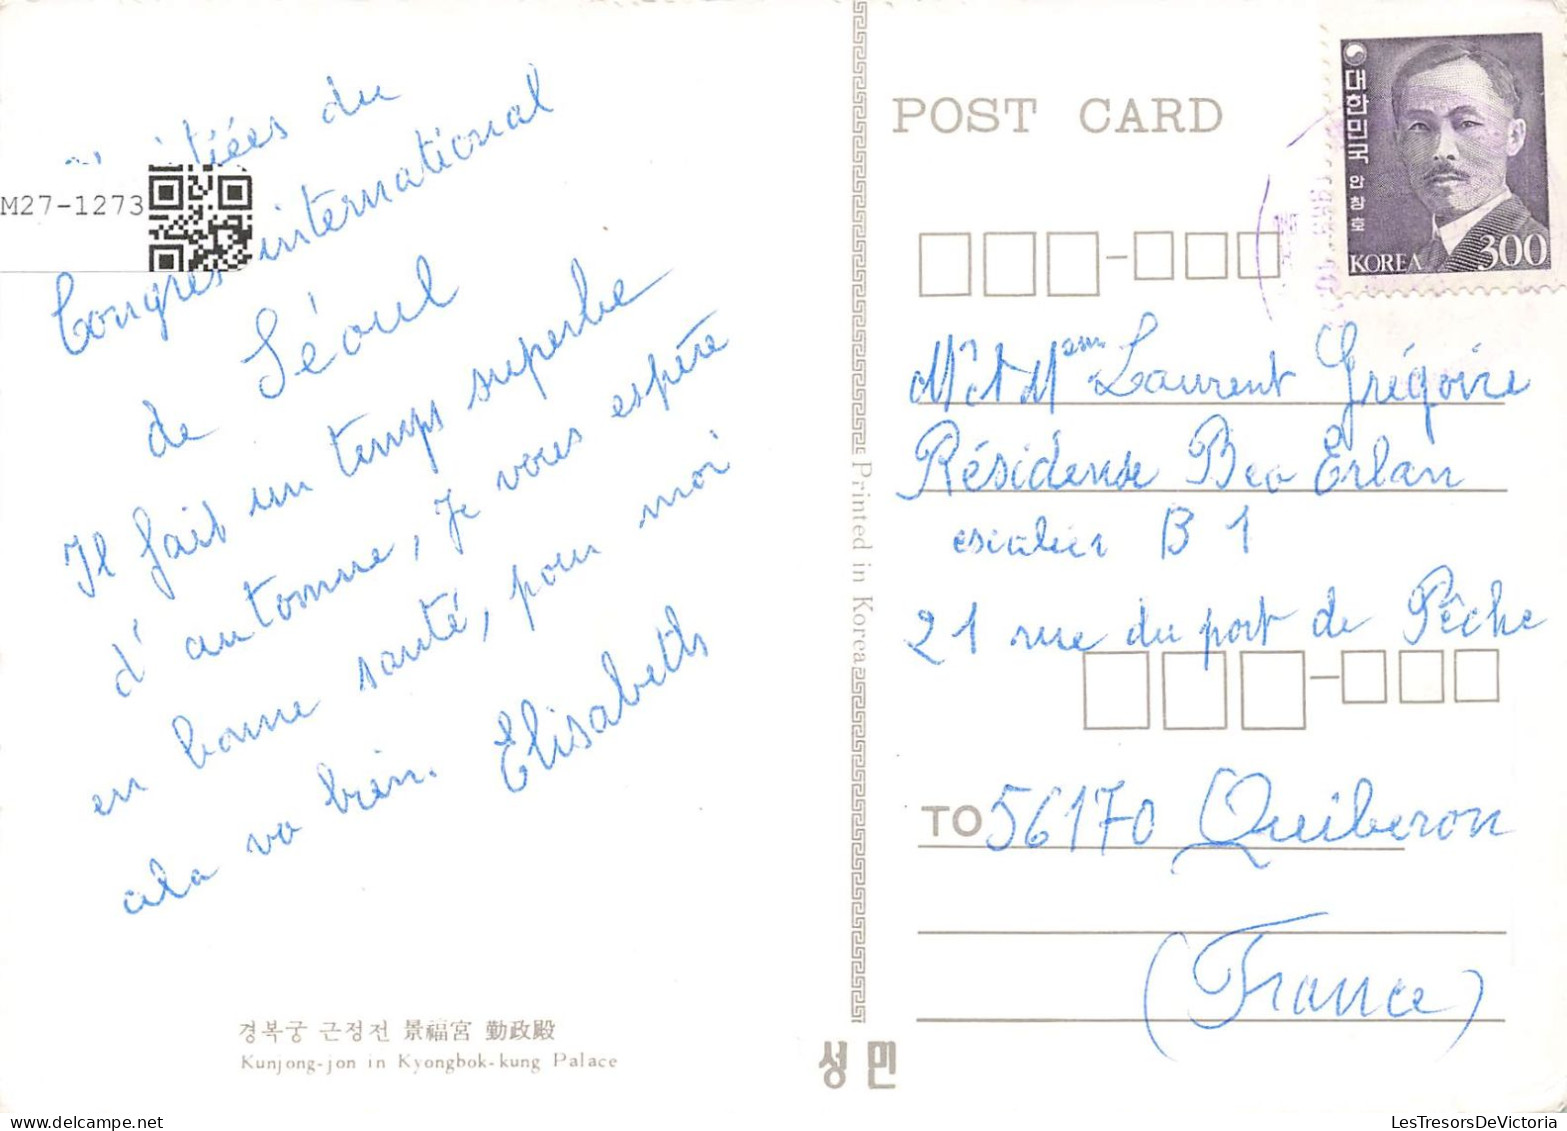 du
M27-1273
Congrès international
de Séoul
Il fait un temps superbe
d'automne, je vous espère
en bonne santé, pour moi
cela va bien. Elisabeth
경복궁 근정전 景福宮 勤政殿
Kunjong-jon in Kyongbok-kung Palace
Printed in Korea
성민
POST CARD
대한민국 안창호
KOREA 300
Mr et Mme Laurent Grégoire
Résidense Beo Erlan
escalier B 1
21 rue du port de Pêche
TO 56170 Quiberon
(France)
LesTresorsDeVictoria